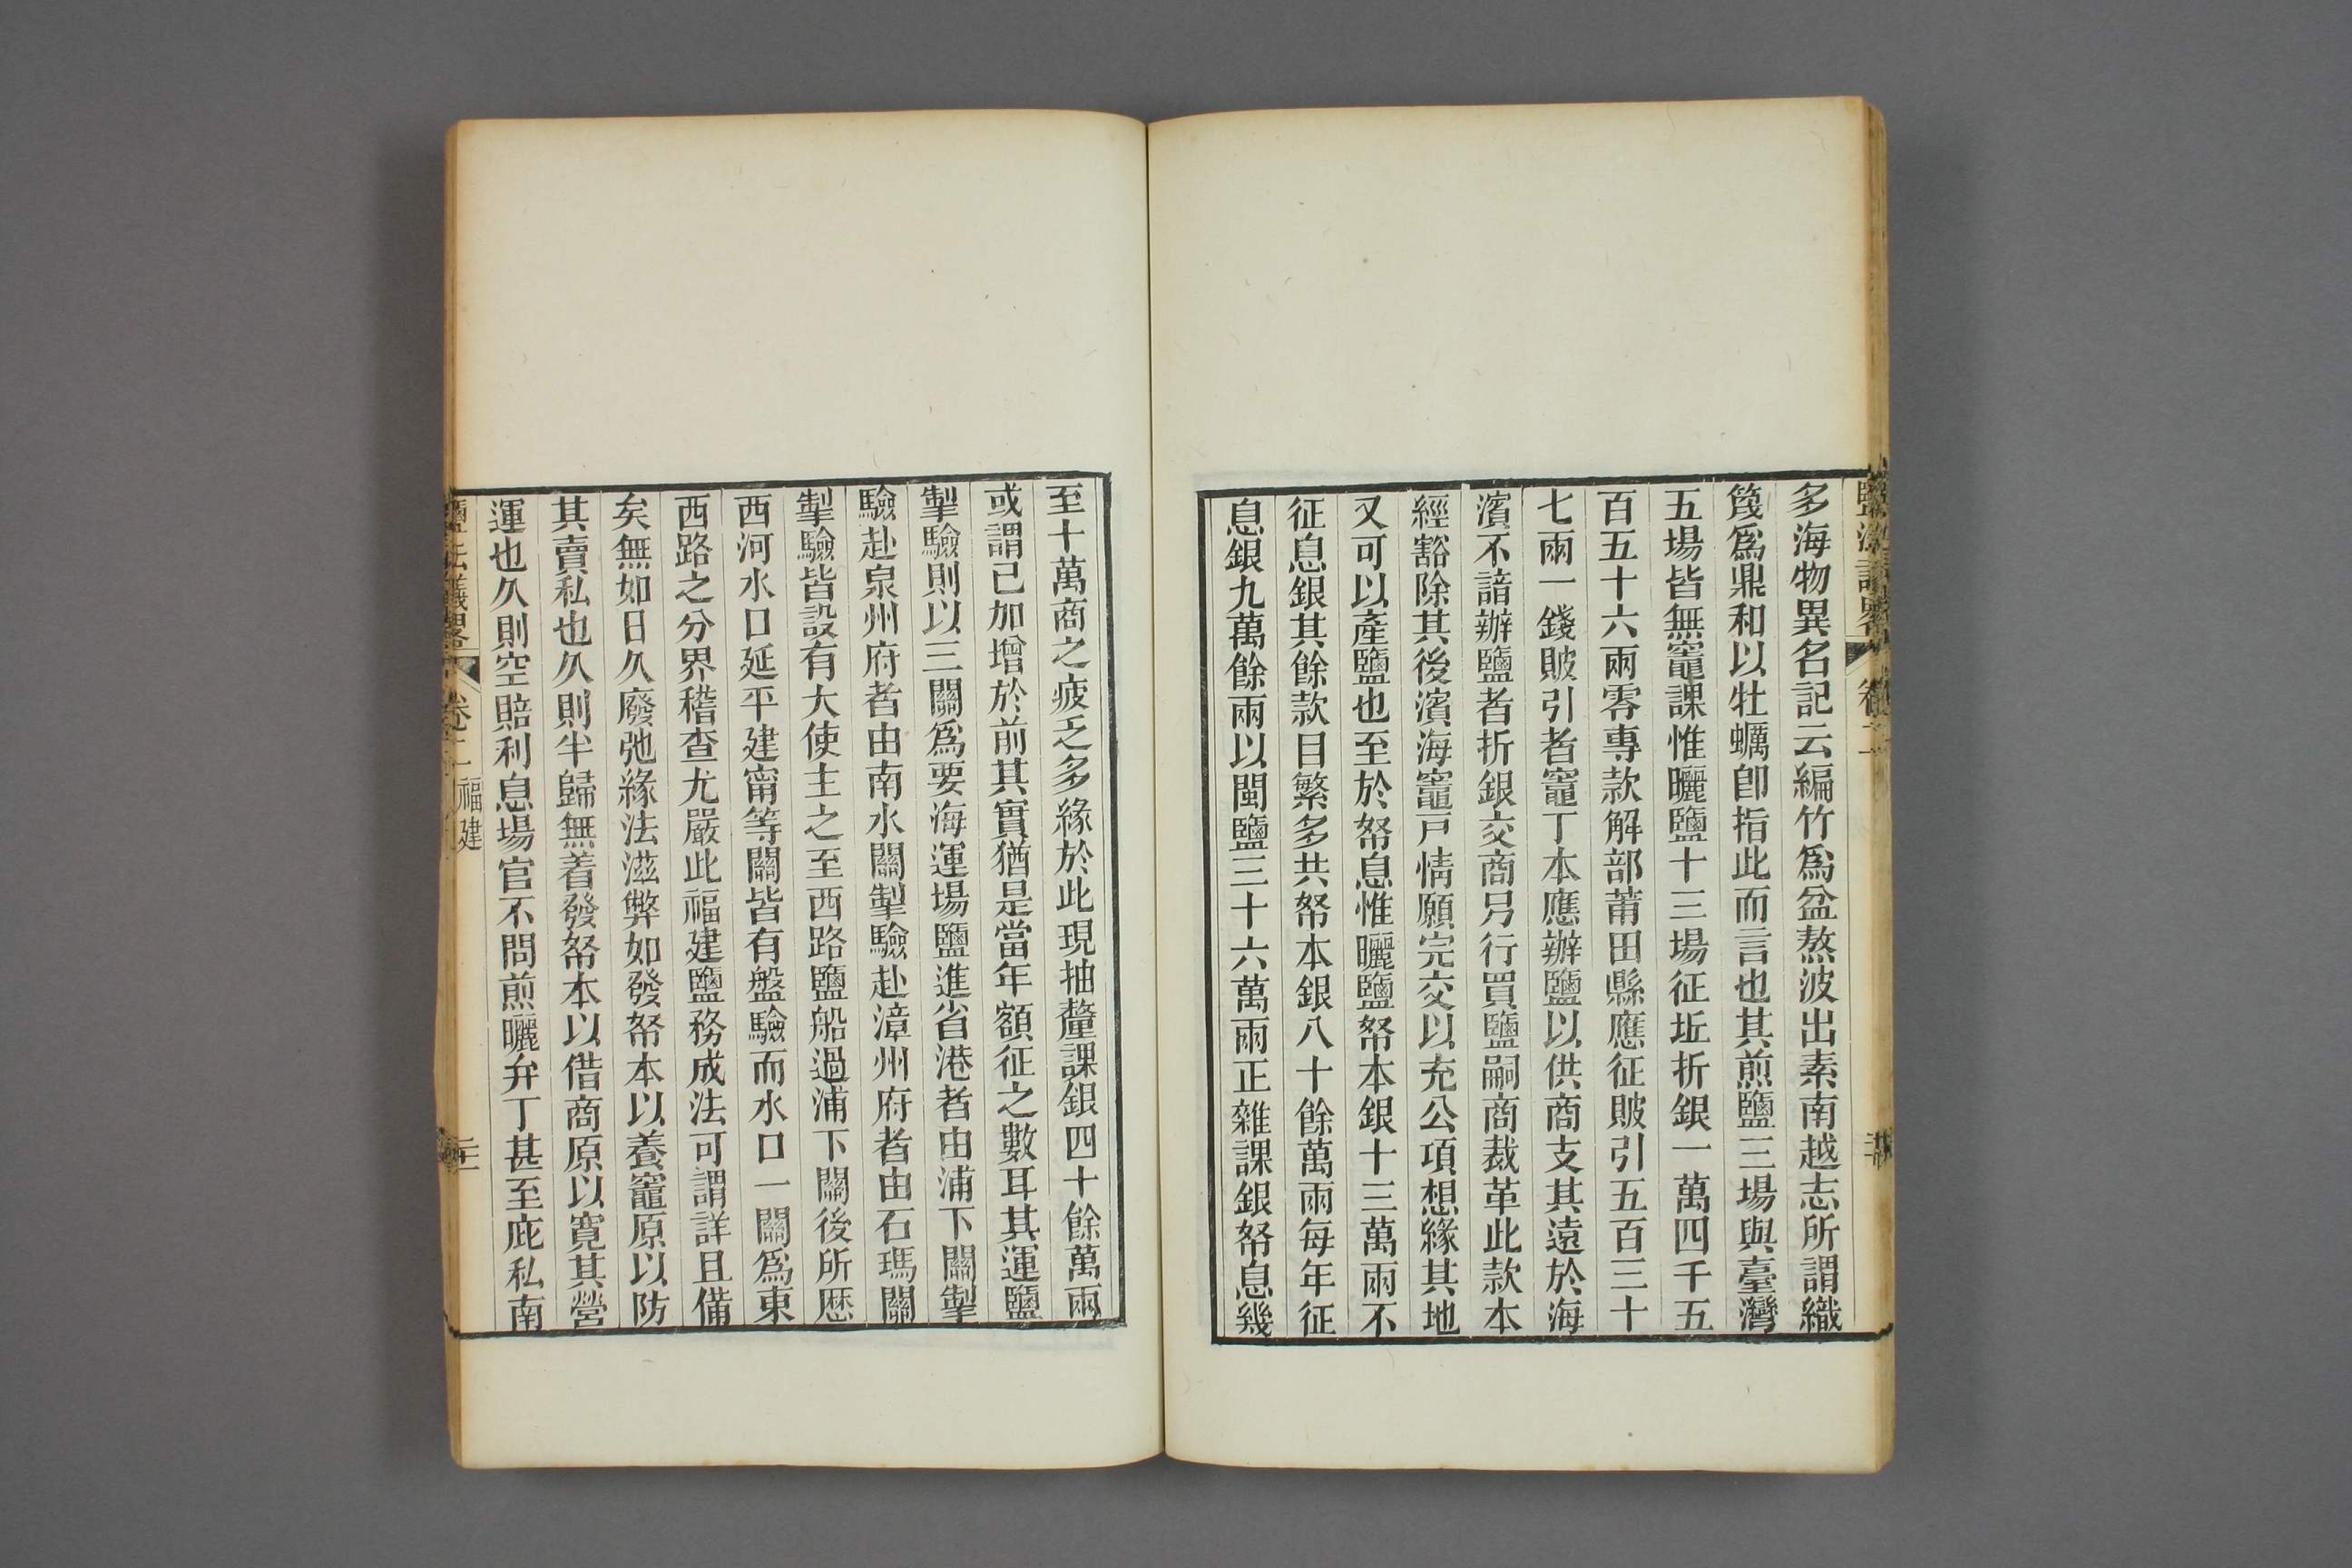 多海物異名記云編竹爲盆熬波出素南越志所謂織
篾爲鼎和以牡蠣卽指此而言也其煎鹽三場與臺灣
五場皆無竈課惟曬鹽十三場征坵折銀一萬四千五
百五十六兩零專款解部莆田縣應征賍引五百三十
七兩一錢賍引者竈丁本應辦鹽以供商支其遠於海
濱不諳辦鹽者折銀交商另行買鹽嗣商裁革此款本
經豁除其後濱海竈戸情願完交以充公項想緣其地
又可以產鹽也至於帑息惟曬鹽帑本銀十三萬兩不
征息銀其餘款目繁多共帑本銀八十餘萬兩每年征
息銀九萬餘兩以閩鹽三十六萬兩正雜課銀帑息幾
至十萬商之疲乏多緣於此現抽釐課銀四十餘萬兩
或謂已加增於前其實猶是當年額征之數耳其運鹽
掣驗則以三關爲要海運場鹽進省港者由浦下關掣
驗赴泉州府者由南水關掣驗赴漳州府者由石瑪關
掣驗皆設有大使主之至西路鹽船過浦下關後所歷
西河水口延平建甯等關皆有盤驗而水口一關爲東
西路之分界稽查尤嚴此福建鹽務成法可謂詳且備
矣無如日久廢弛緣法滋弊如發帑本以養竈原以防
其賣私也久則半歸無着發帑本以借商原以寬其營
運也久則空賠利息場官不問煎曬弁丁甚至庇私南
鹽法議畧 卷二 福建